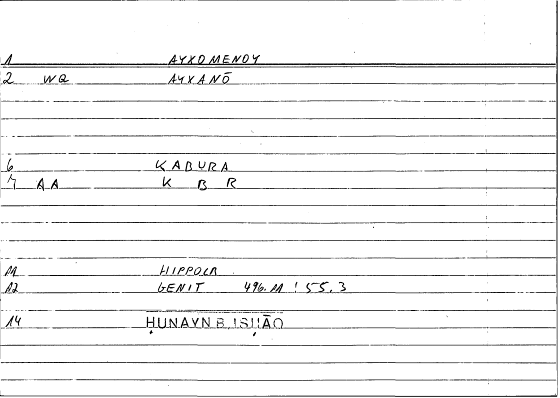 1 AYXOMENOY
2 WQ AYXANŌ
6 KABURA
7 AA K B R
11 HIPPOCR
12 GENIT 496.11 : 55.3
14 ḤUNAYN B. ISḤĀQ